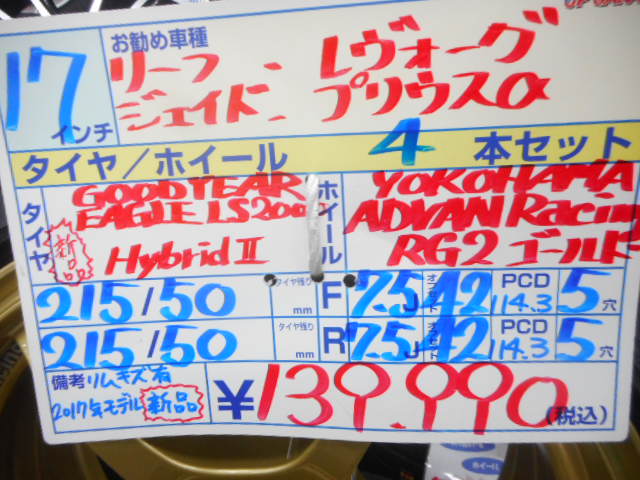 17
インチ
お勧め車種
リーフ レヴォーグ
ジェイド プリウスα
タイヤ/ホイール 4 本セット
タイヤ
新品
GOODYEAR
EAGLE LS2000
Hybrid II
ホイール
YOKOHAMA
ADVAN Racing
RG2 ゴールド
215/50 タイヤ残り mm F 7.5J オフセット 42 PCD 114.3 5穴
215/50 タイヤ残り mm R 7.5J オフセット 42 PCD 114.3 5穴
備考 リムキズ有
2017年モデル 新品
¥139,990 (税込)
ホイール